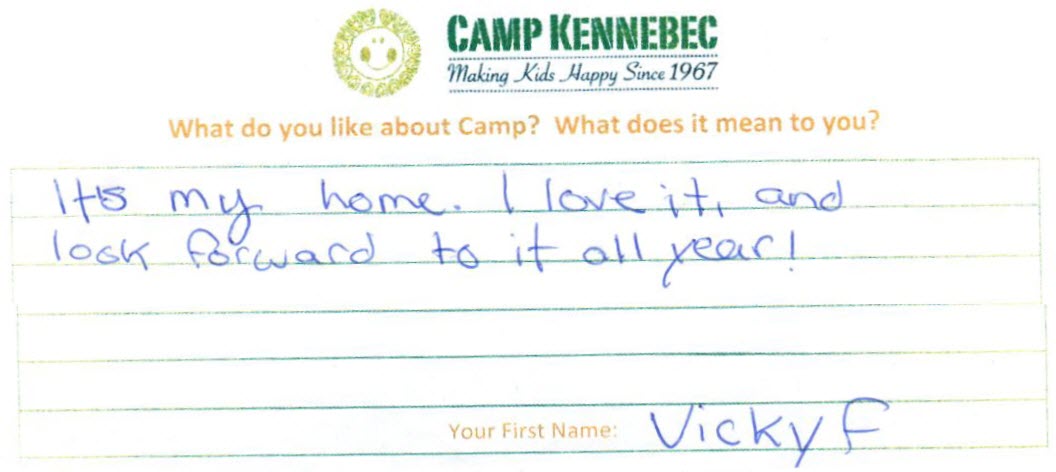 CAMP KENNEBEC
Making Kids Happy Since 1967
What do you like about Camp? What does it mean to you?
It's my home. I love it, and
look forward to it all year!
Your First Name: Vicky F